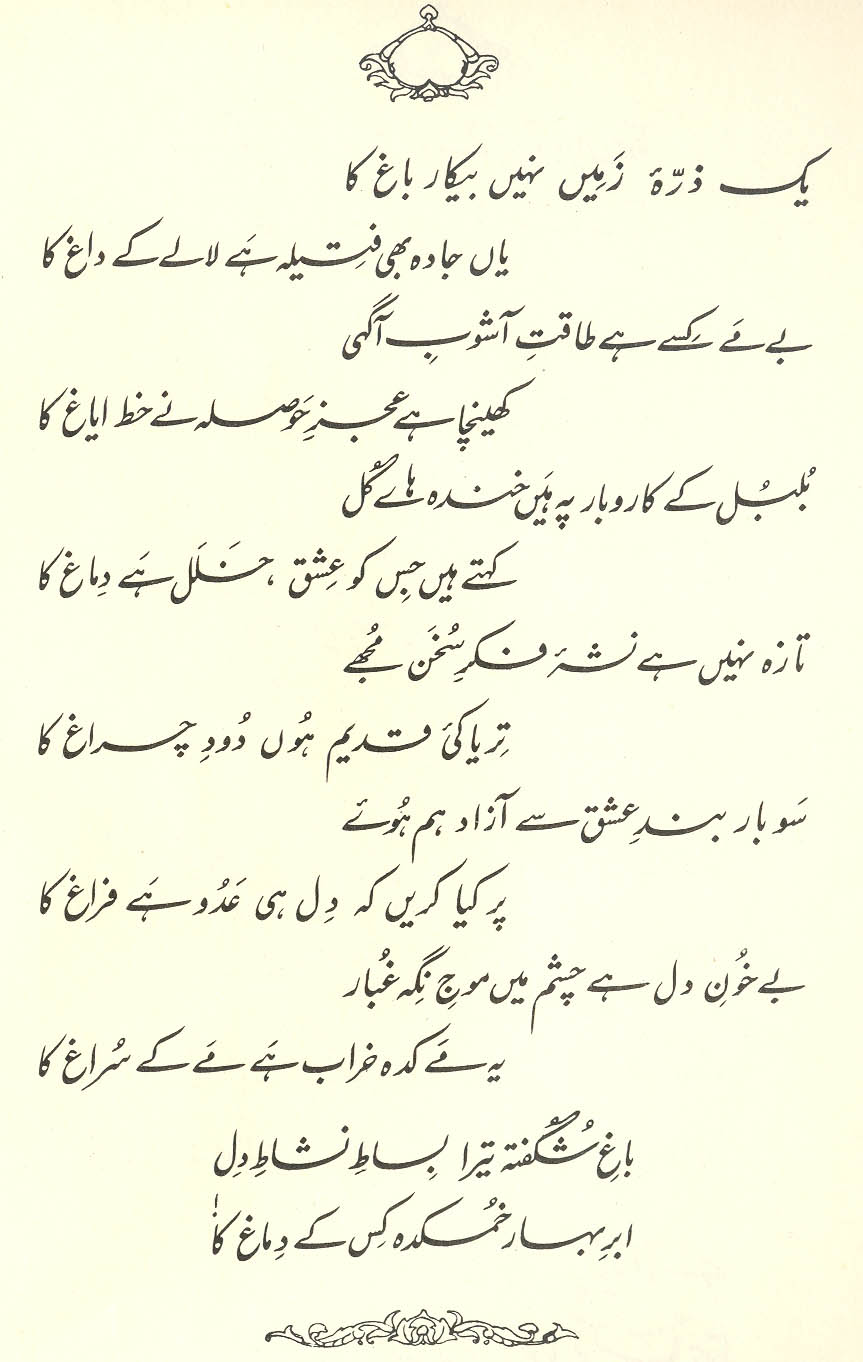 یک ذرّۂ زَمِیں نہیں بیکار باغ کا
یاں جادہ بھی فتِیلہ ہَے لالے کے داغ کا
بے مَے کِسے ہے طاقتِ آشوبِ آگہی
کھینچا ہے عجزِ حَوصلہ نے خط ایاغ کا
بُلبُل کے کاروبار پہ ہَیں خندہ ہاے گُل
کہتے ہیں جِس کو عِشق ، خَلَل ہَے دِماغ کا
تازہ نہیں ہے نشۂ فکرِ سُخَن مُجھے
تِریاکیٔ قدیم ہُوں دُودِ چراغ کا
سَو بار بندِ عِشق سے آزاد ہم ہُوئے
پر کیا کریں کہ دِل ہی عَدُو ہَے فراغ کا
بے خُونِ دل ہے چشم میں موجِ نِگہ غُبار
یہ مَے کدہ خراب ہَے مَے کے سُراغ کا
باغِ شُگُفتہ تیرا بِساطِ نشاطِ دِل
ابرِ بہار خُمکدہ کِس کے دِماغ کا!